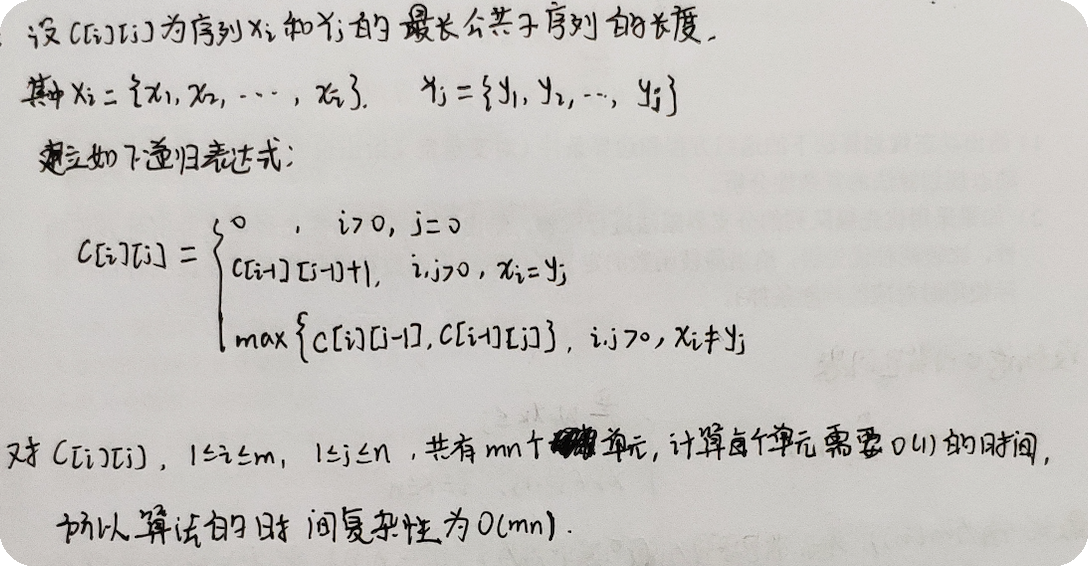 设C[i][j]为序列Xi和Yj的最长公共子序列的长度.
其中Xi={x1,x2,…,xi}. Yj={y1,y2,…,yj}
建立如下递归表达式:
0 , i>0, j=0
C[i][j]={ C[i-1][j-1]+1, i,j>0, xi=yj
max{C[i][j-1],C[i-1][j]}, i.j>0, xi≠yj
对C[i][j], 1≤i≤m, 1≤j≤n,共有mn个单元,计算每个单元需要O(1)的时间,
所以算法的时间复杂性为O(mn).